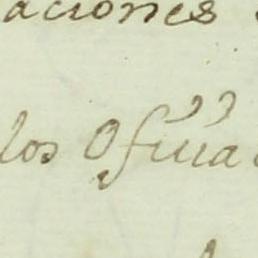 aciones
los Oficia